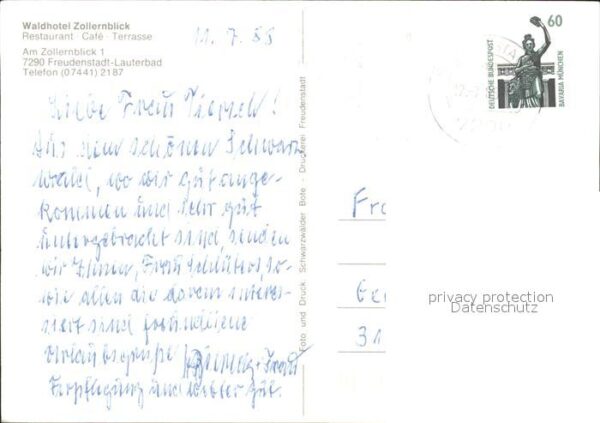 Waldhotel Zollernblick
Restaurant · Café · Terrasse
Am Zollernblick 1
7290 Freudenstadt-Lauterbad
Telefon (07441) 2187
11.7.88
Liebe Frau
Aus dem schönen Schwarz-
wald, wo wir gut ange-
kommen und sehr gut
untergebracht sind, senden
wir Ihnen, Frau Schlüter, so-
wie allen die daran interes-
siert sind freundliche
Urlaubsgrüße
Verpflegung und Wetter gut.
Foto und Druck: Schwarzwälder Bote · Druckerei Freudenstadt
60
DEUTSCHE BUNDESPOST
BAVARIA MÜNCHEN
Fr
31
privacy protection
Datenschutz